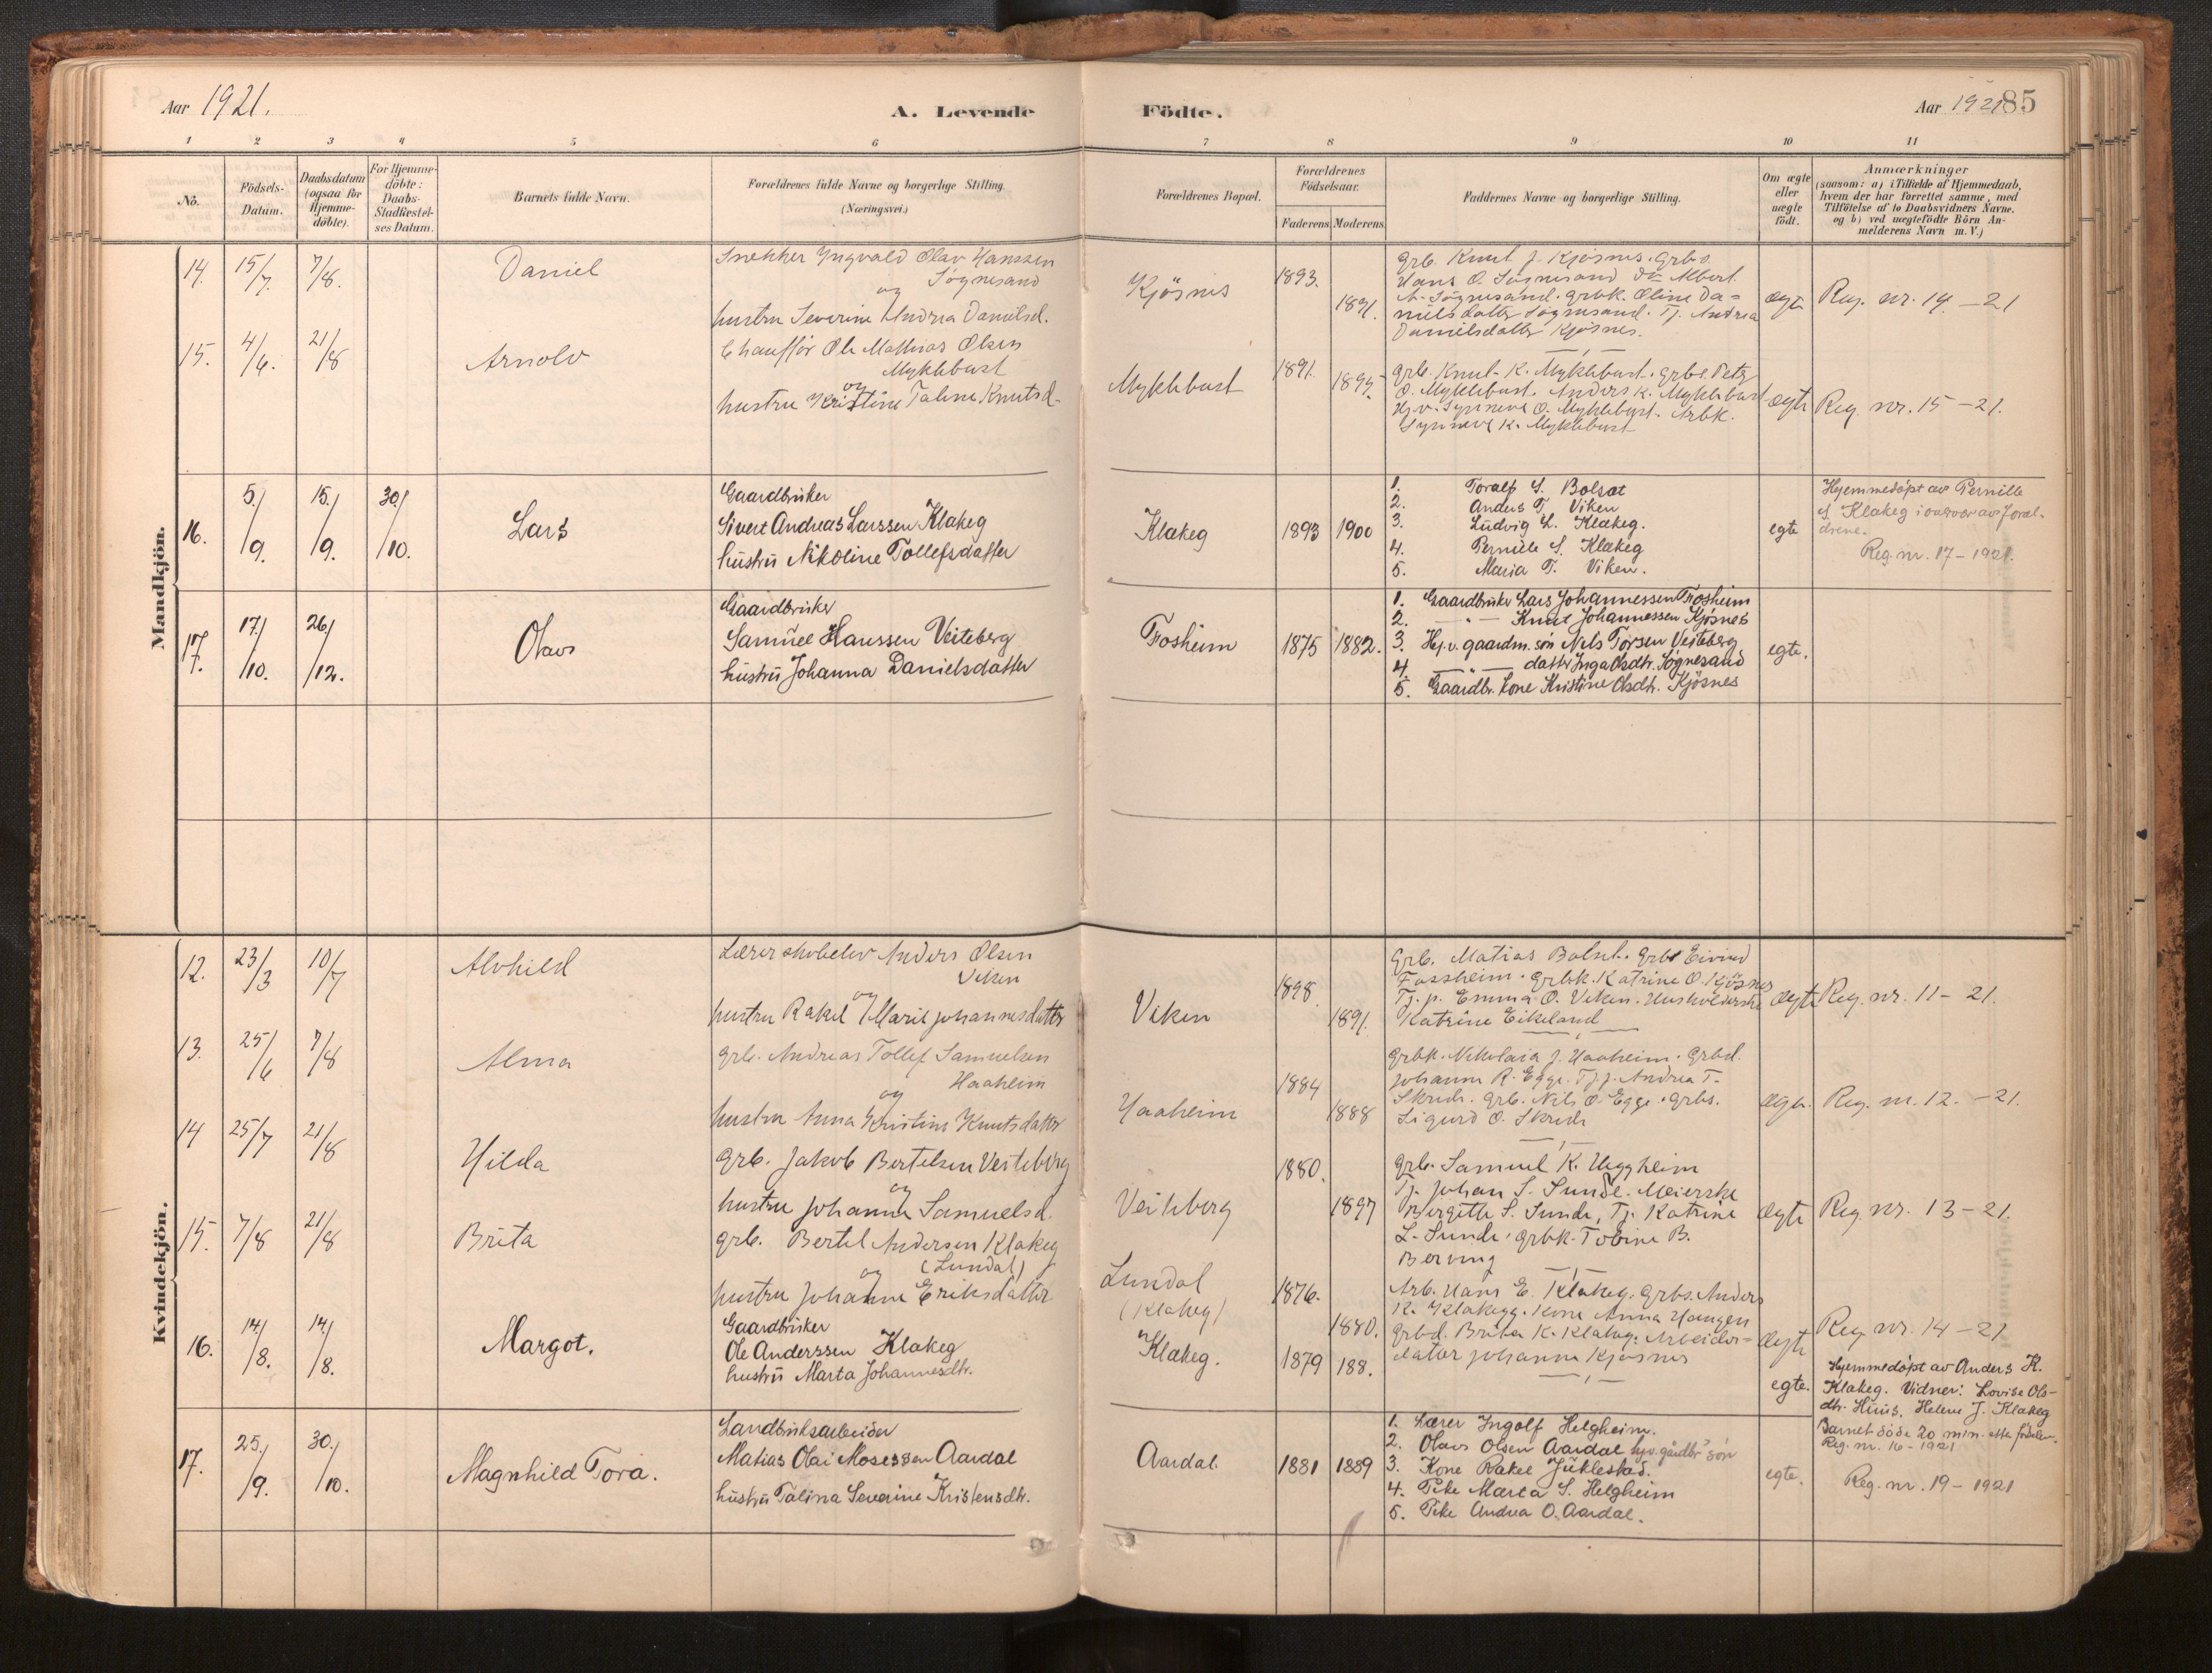 Aar 1921.
A. Levende Födte.
Aar 1921 85
1 2 3 4 5 6 7 8 9 10 11
No.
Födsels-
Datum.
Daabsdatum
(ogsaa for
Hjemme-
döbte).
For Hjemme-
döbte:
Daabs-
Stadfestel-
ses Datum.
Barnets fulde Navn.
Forældrenes fulde Navne og borgerlige Stilling.
(Næringsvei.)
Forældrenes Bopæl.
Forældrenes
Födselsaar.
Faderens Moderens
Faddernes Navne og borgerlige Stilling.
Om ægte
eller
uægte
födt.
Anmærkninger
(saasom: a) i Tilfælde af Hjemmedaab,
hvem der har forrettet samme, med
Tilföielse af to Daabsvidners Navne.
og b) ved uægtefödte Börn An-
melderens Navn m. V.)
Mandkjön.
14. 15/7. 7/8. Daniel
Snekker Yngvald Olav Hanssen
Søgnesand
og
hustru Severine Andrea Danielsd.
Kjösnis
1893.
1891.
grb. Knut J. Kjøsnes. Grbs.
Hans O. Søgnesand do Albert
A. Søgnesand. grbk. Oline Da=
nielsdatter Søgnesand. Tj. Andrea
Danielsdatter Kjøsnes.
ægte
Reg. nr. 14 - 21
15. 4/6. 21/8 Arnolv
Chauffør Ole Mathias Olsen
Myklebust
og
hustru Kristine Taline Knutsd.
Myklebust
1891.
grb. Knut K. Myklebust. grbs. Petr
O. Myklebust. Anders K. Myklebust
Hj.v. Synneve O. Myklebust. Arbk.
Synneve K. Myklebust
ægte
Reg. nr. 15 - 21.
16. 5./9. 15./9. 30./10. Lars
Gaardbruker
Sivert Andreas Larssen Klakeg
hustru Nikoline Tollefsdatter
Klakeg
1893 1900
1. Toralf S. Bolsæt
2. Anders T. Viken
3. Ludvig L. Klakeg.
4. Pernille S. Klakeg
5. Maria T. Viken.
egte
Hjemmedöpt av Pernille
S. Klakeg i nærvær av foræl-
drene.
Reg. nr. 17 - 1921.
17. 17./10. 26./12. Olavs
Gaardbruker
Samuel Hanssen Veiteberg
hustru Johanna Danielsdatter
Fosheim
1875 1882.
1. Gaardbruker Lars Johannessen Fosheim
2. — " — Knut Johannessen Kjøsnes
3. Hj.v. gaardm. søn Nils Torsen Veiteberg
4. — " — datter Inga Olsdtr. Søgnesand
5. Gaardbr. kone Kristine Olsdtr. Kjösnes
egte.
Kvindekjön.
12. 23/3 10/7 Alvhild
Lærerskoleelev Anders Olsen
Viken
og
hustru Rakel Marie Johannesdatter
Viken
1898
1891.
Grb. Matias Bolset. Grbs Eivind
Fossheim. Grbk. Katrine O. Kjøsnes
Tj. p. Emma O. Viken. Husholderske
Katrine Eikeland
ægte
Reg. nr. 11 - 21.
13. 25/6 7/8 Alma
grb. Andreas Tollef Samuelsen
Haaheim
og
hustru Anna Kristine Knutsdatter
Haaheim
1884
1888
Grbk. Nikolaia J. Haaheim. Grbd.
Johanne R. Egge. Tj. p. Andrea T.
Skrede. grb. Nils O. Egge. grbs.
Sigurd O. Skrede
ægte.
Reg. nr. 12. - 21.
14 25/7 21/8 Hilda
grb. Jakob Bertelsen Veiteberg
og
hustru Johanne Samuelsd.
Veiteberg
1880.
1897
grb. Samuel K. Heggheim
Tj. Johan S. Sunde. Meierske
Bergitte S. Sunde, Tj. Katrine
L. Sunde. grbk. Tobine B.
Berung
ægte
Reg. nr. 13 - 21.
15. 7/8 21/8 Brita
grb. Bertel Andersen Klakeg
(Lundal)
og
hustru Johanne Eriksdatter
Lundal
(Klakeg)
1876.
1880.
Arb. Hans E. Klakeg. Grbs. Anders
K. Klakegg. Kone Anna Haugen
grbd. Brita K. Klakeg. Arbeider=
datter Johanne Kjøsnes
ægte
Reg. nr. 14 - 21
16. 14./8. 14./8. Margot.
Gaardbruker
Ole Anderssen Klakeg
hustru Marta Johannesdtr.
Klakeg.
1879 188.
egte.
Hjemmedöpt av Anders K.
Klakeg. Vidner: Lovise Ols-
dtr. Huus, Helene J. Klakeg
Barnet döde 20 min. efter födselen.
Reg. nr. 16 - 1921
17. 25./9. 30./10. Magnhild Tora.
Landbruksarbeider
Matias Olai Mosessen Aardal
hustru Talina Severine Kristensdtr.
Aardal
1881 1889
1. Lærer Ingolf Helgheim.
2. Olavs Olsen Aardal hjv. gårdbr. søn
3. Kone Rakel Jüklestad.
4. Pike Marta S. Helgheim
5. Pike Andrea O. Aardal.
egte.
Reg. nr. 19 - 1921